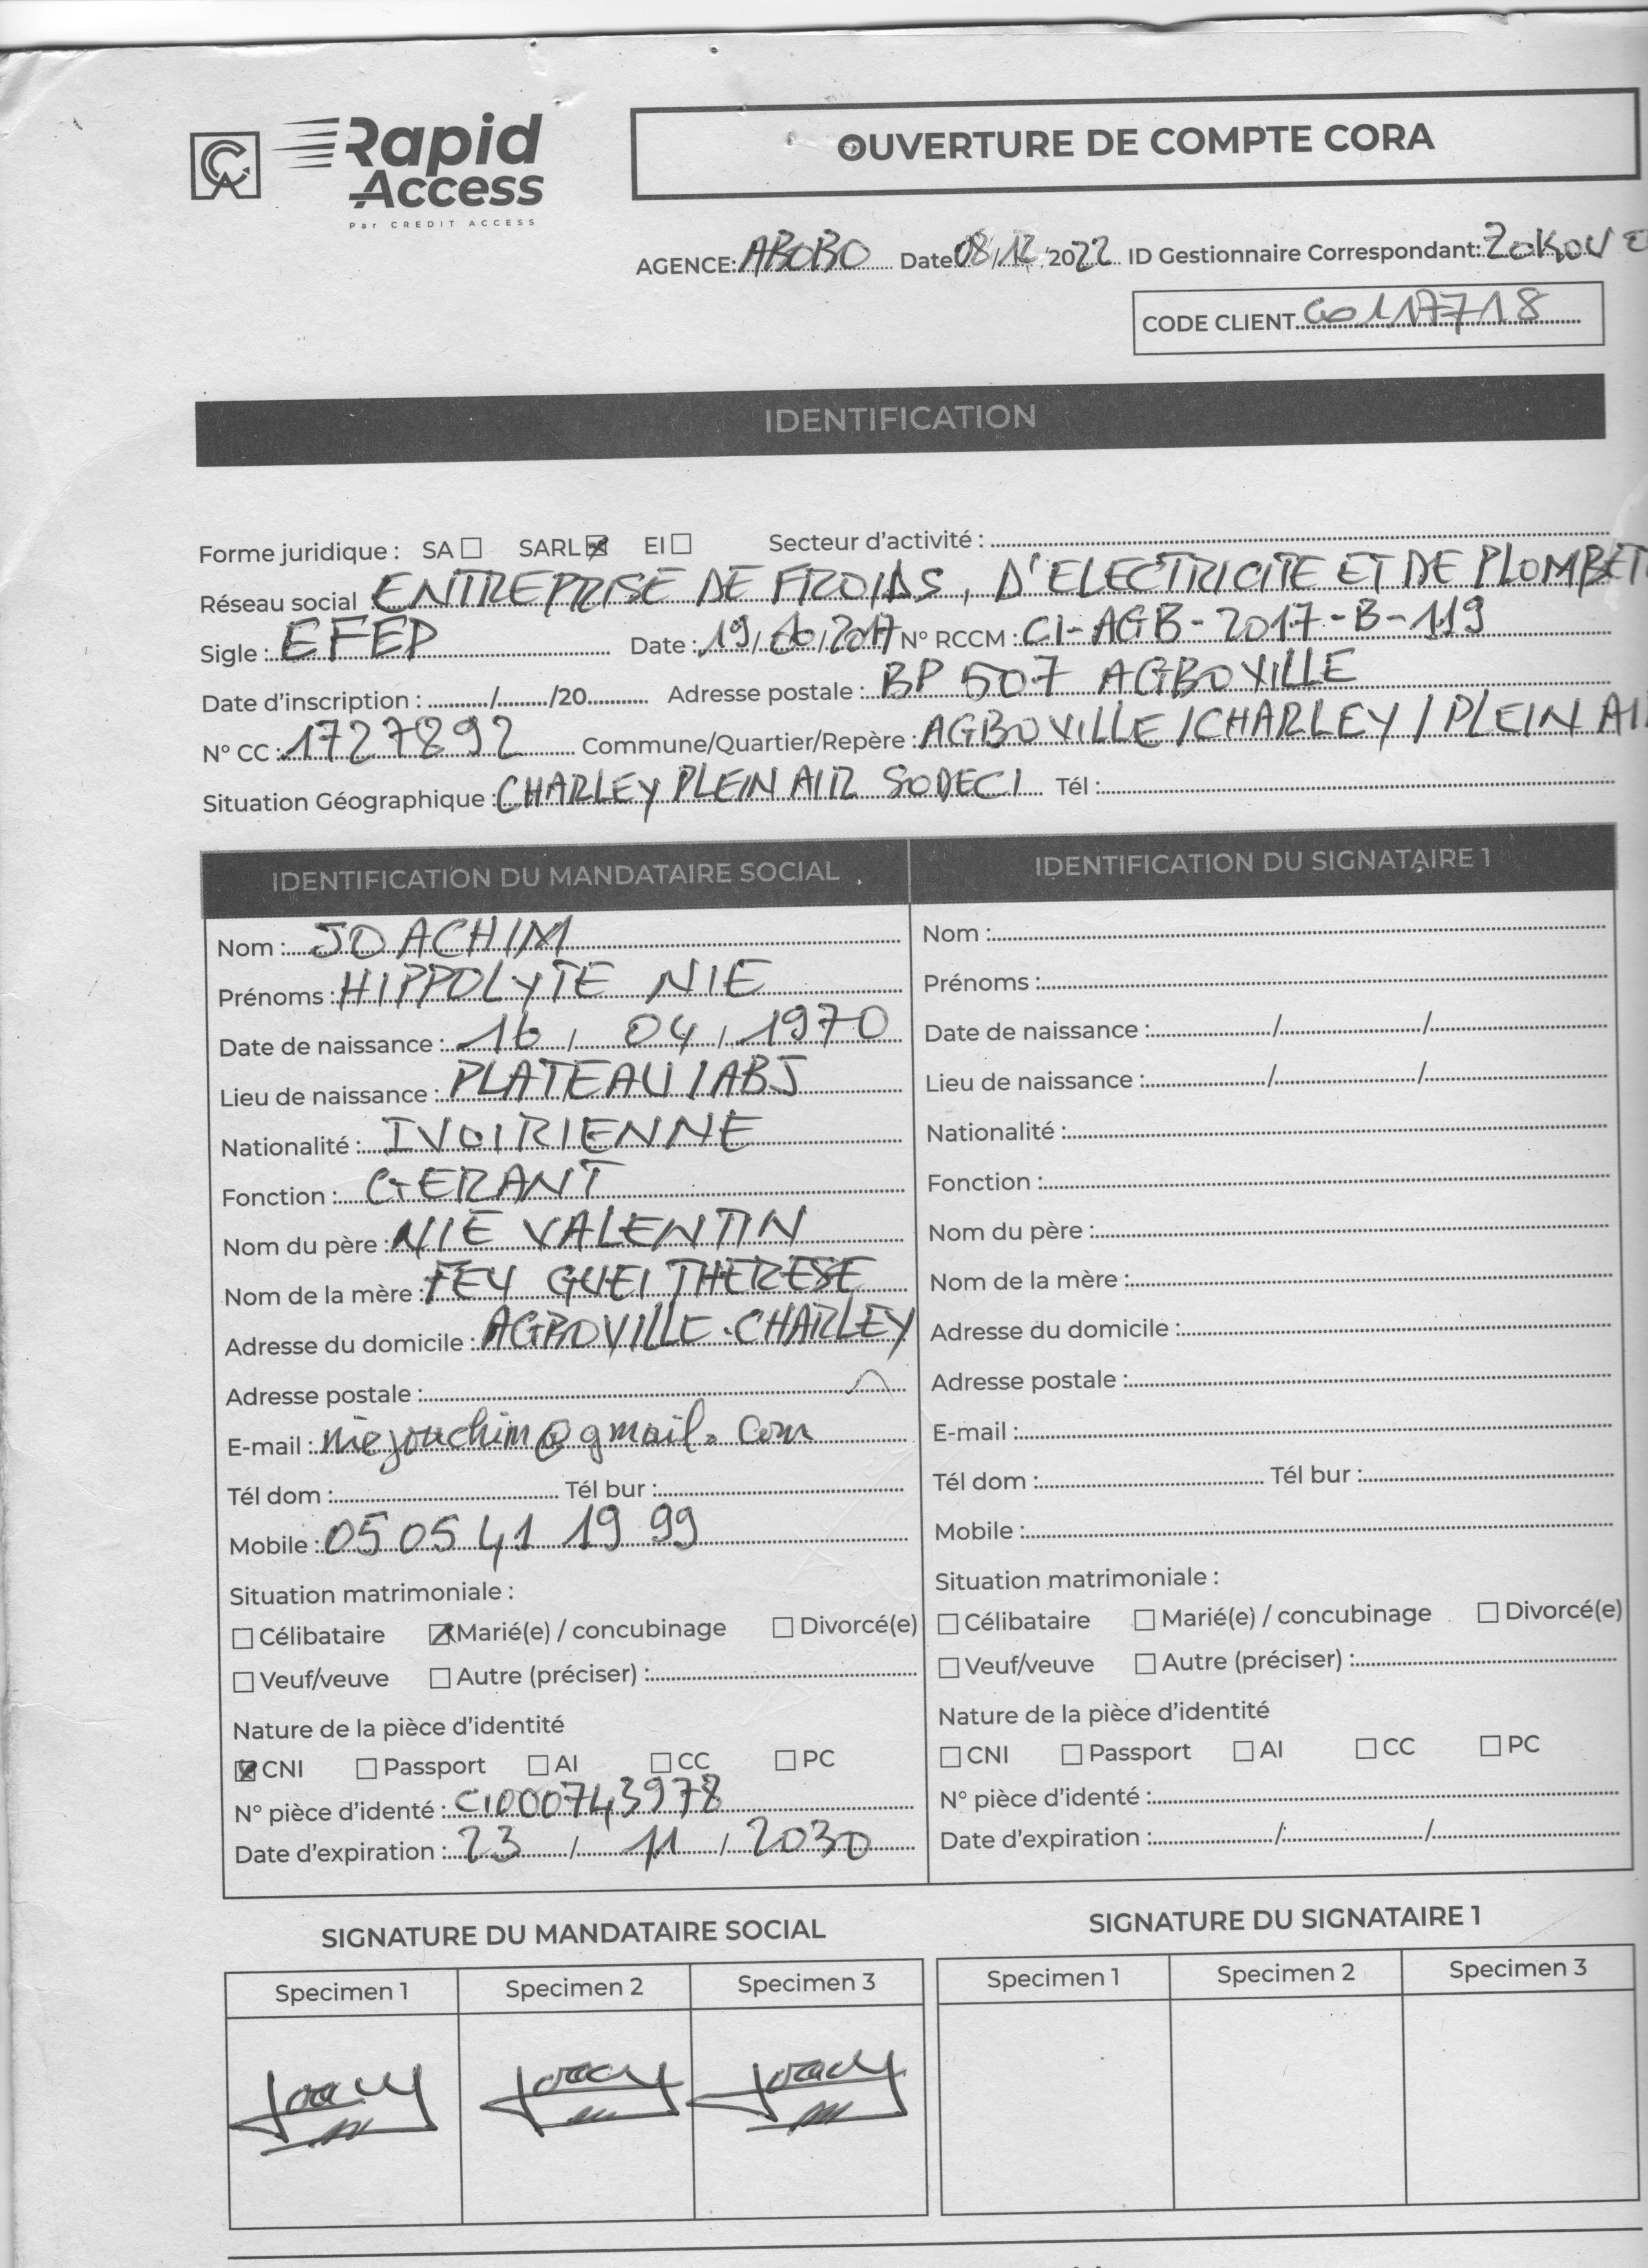 CA Rapid Access
Par CREDIT ACCESS
OUVERTURE DE COMPTE CORA
AGENCE: ABOBO Date 08/12/2022 ID Gestionnaire Correspondant: ZOKOU
CODE CLIENT
IDENTIFICATION
Forme juridique : SA ☐ SARL ☒ EI ☐ Secteur d'activité :
Réseau social ENTREPRISE DE FROIDS, D'ELECTRICITE ET DE
Sigle : EFEP Date : 19/ /2017 N° RCCM : CI-AGB-2017-B-119
Date d'inscription : ......../......../20........ Adresse postale : BP 507 AGBOVILLE
N° CC : 1727892 Commune/Quartier/Repère : AGBOVILLE/CHARLEY/PLEIN
Situation Géographique : CHARLEY PLEIN AIR SODECI Tél :
IDENTIFICATION DU MANDATAIRE SOCIAL
Nom : JOACHIM
Prénoms : HIPPOLYTE NIE
Date de naissance : 16 / 04 / 1970
Lieu de naissance : PLATEAU/ABJ
Nationalité : IVOIRIENNE
Fonction : GERANT
Nom du père : NIE VALENTIN
Nom de la mère : FEY GUEI THERESE
Adresse du domicile : AGBOVILLE-CHARLEY
Adresse postale :
E-mail : niejoachim@gmail.com
Tél dom : Tél bur :
Mobile : 05 05 41 19 99
Situation matrimoniale :
☐ Célibataire ☒ Marié(e) / concubinage ☐ Divorcé(e)
☐ Veuf/veuve ☐ Autre (préciser) :
Nature de la pièce d'identité
☒ CNI ☐ Passport ☐ AI ☐ CC ☐ PC
N° pièce d'identé : CI000743978
Date d'expiration : 23 / 11 / 2030
IDENTIFICATION DU SIGNATAIRE 1
Nom :
Prénoms :
Date de naissance : / /
Lieu de naissance : / /
Nationalité :
Fonction :
Nom du père :
Nom de la mère :
Adresse du domicile :
Adresse postale :
E-mail :
Tél dom : Tél bur :
Mobile :
Situation matrimoniale :
☐ Célibataire ☐ Marié(e) / concubinage ☐ Divorcé(e)
☐ Veuf/veuve ☐ Autre (préciser) :
Nature de la pièce d'identité
☐ CNI ☐ Passport ☐ AI ☐ CC ☐ PC
N° pièce d'identé :
Date d'expiration : / /
SIGNATURE DU MANDATAIRE SOCIAL
Specimen 1 Specimen 2 Specimen 3
SIGNATURE DU SIGNATAIRE 1
Specimen 1 Specimen 2 Specimen 3